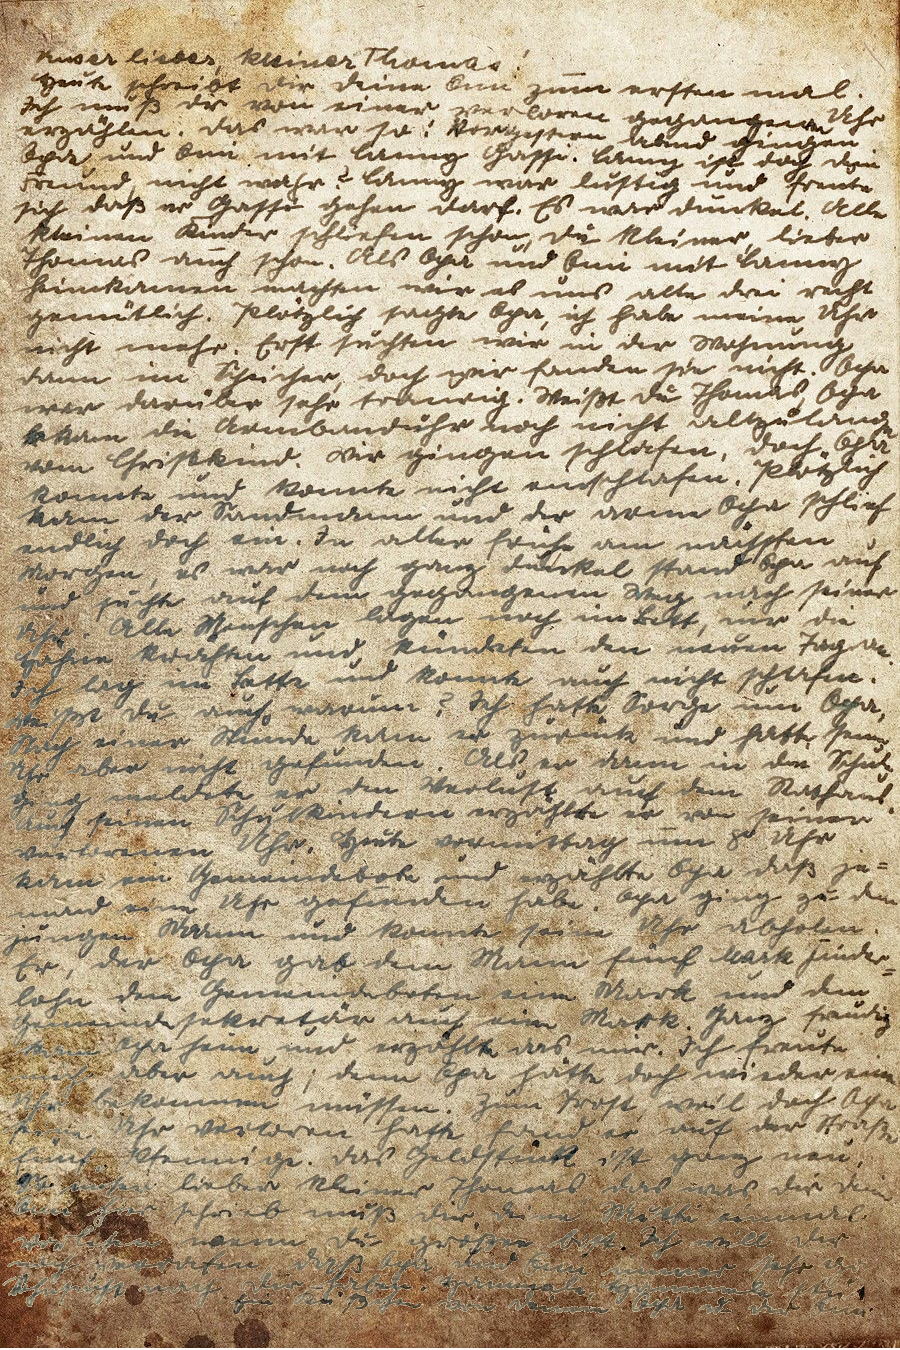 Unser lieber, kleiner Thomas!
Heute schreibt dir deine Omi zum ersten mal.
Ich muß dir von einer verloren gegangenen Uhr
erzählen. Das war so! Vorgestern Abend gingen
Opa und Omi mit Lanny Gassi. Lanny ist doch dein
Freund, nicht wahr? Lanny war lustig und freute
sich daß er Gassi gehen darf. Es war dunkel. Alle
kleinen Kinder schliefen schon, du kleiner, lieber
Thomas auch schon. Als Opa und Omi mit Lanny
heimkamen machten wir es uns alle drei recht
gemütlich. Plötzlich sagte Opa, ich habe meine Uhr
nicht mehr. Erst suchten wir in der Wohnung
dann im Speicher, doch wir fanden sie nicht. Opa
war darüber sehr traurig. Weißt du Thomas, Opa
bekam die Armbanduhr noch nicht allzulange
vom Christkind. Wir gingen schlafen, doch Opa
konnte und konnte nicht einschlafen. Plötzlich
kam der Sandmann und der arme Opa schlief
endlich doch ein. In aller frühe am nächsten
Morgen, es war noch ganz dunkel stand Opa auf
und suchte auf dem gegangenen Weg nach seiner
Uhr. Alle Menschen lagen noch im Bett, nur die
Hähne krähten und kündeten den neuen Tag an.
Ich lag im Bette und konnte auch nicht schlafen.
Weißt du auch warum? Ich hatte Sorge um Opa.
Nach einer Stunde kam er zurück und hatte seine
Uhr aber nicht gefunden. Als er dann in die Schule
ging meldete er den Verlust auch dem Rathaus.
Auch seinen Schulkindern erzählte er von seiner
verlorenen Uhr. Heute vormittag um 8 Uhr
kam ein Gemeindebote und erzählte Opa daß je=
mand eine Uhr gefunden habe. Opa ging zu dem
jungen Mann und konnte seine Uhr abholen.
Er, der Opa gab dem Mann fünf Mark Finder=
lohn dem Gemeindeboten eine Mark und dem
Gemeindesekretär auch eine Mark. Ganz freudig
kam Opa heim und erzählte das mir. Ich freute
mich aber auch; denn Opa hätte doch wieder eine
Uhr bekommen müssen. Zum Trost weil doch Opa
seine Uhr verloren hatte fand er auf der Straße
fünf Pfennige. Das Geldstück ist ganz neu.
lieber kleiner Thomas das was dir deine
Omi hier schrieb muß dir deine Mutti einmal
vorlesen wenn du größer bist. Ich will dir
noch verraten, daß Opa und Omi immer sehr
Sehnsucht nach dir haben.
von deinem Opa u. der Omi.